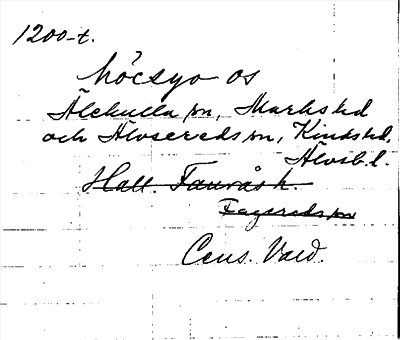 1200-t.
hócsyo os
Älekulla sn, Marks hd
och Älvsereds sn, Kinds hd,
Älvsb. l.
Hall. Faurås h.
Fagereds sn
Cens. Vald.